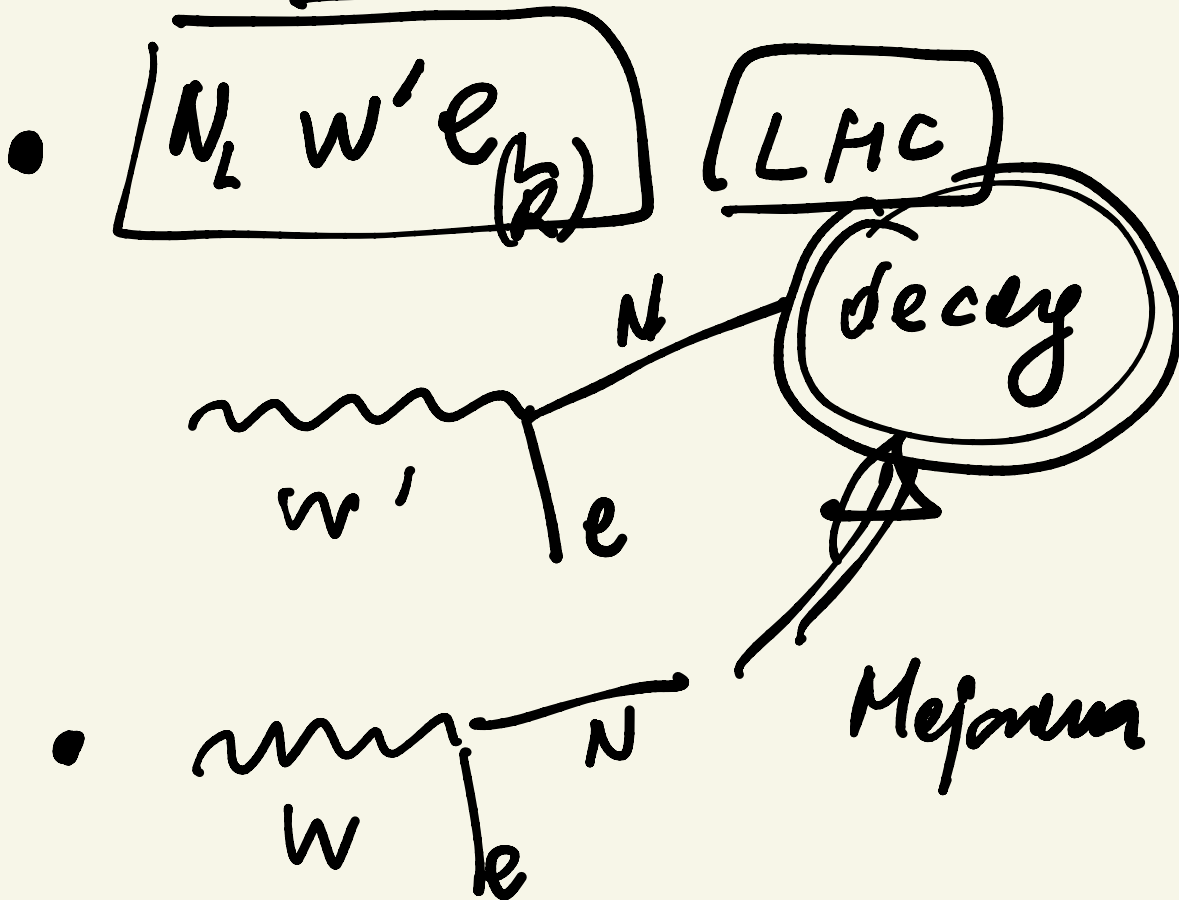 • N_L W' e_(R) LHC
N decay
W' e
• W N e Majorana